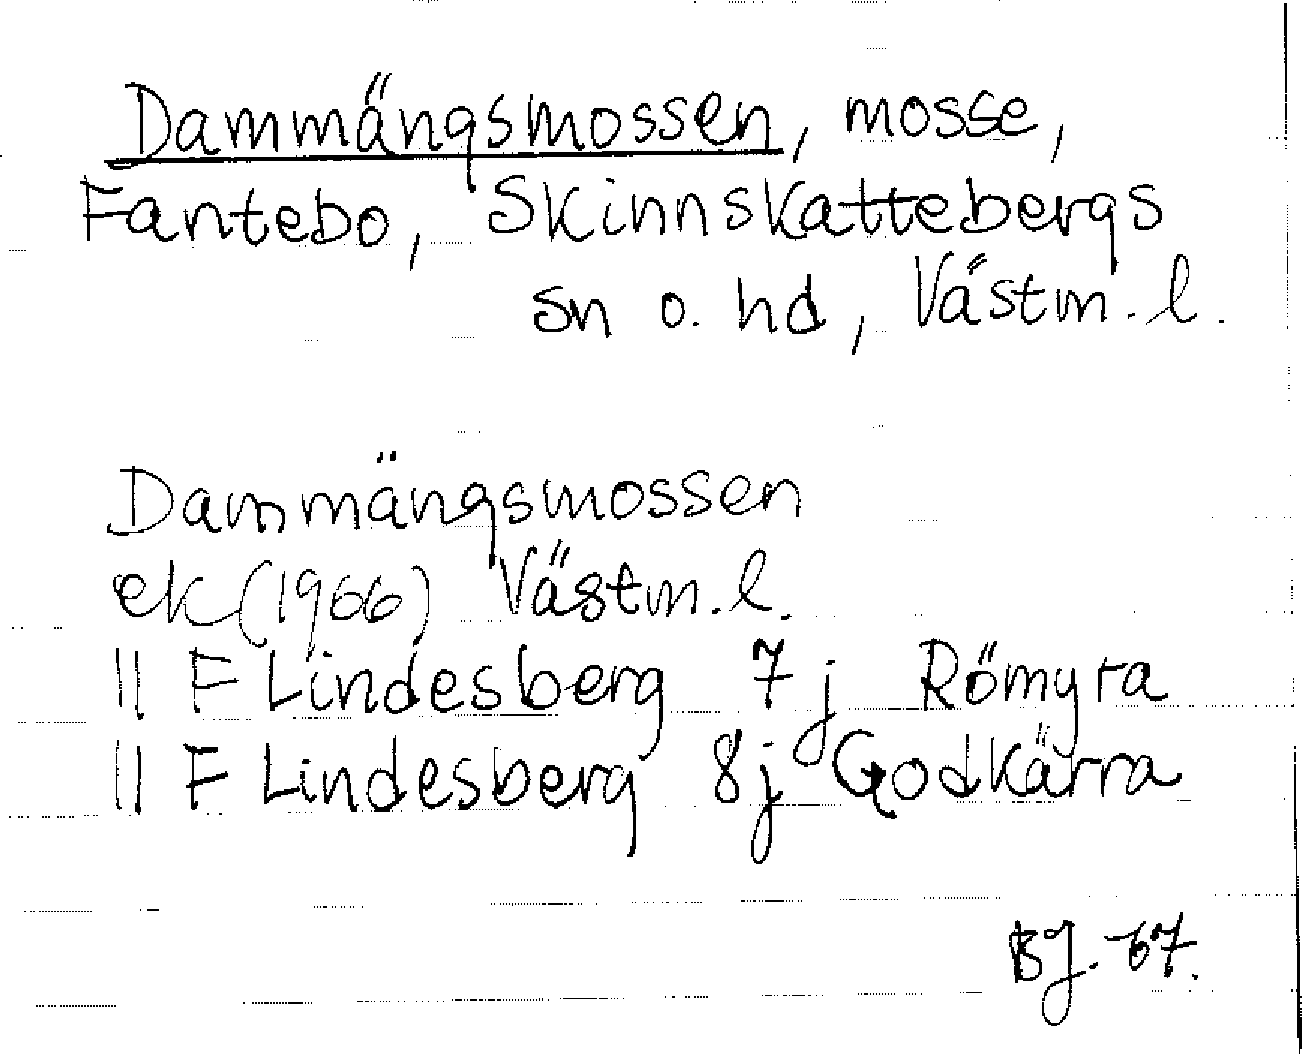 Dammängsmossen, mosse,
Fantebo, Skinnskattebergs
sn o. hd, Västm.l.
Dammängsmossen
ek(1966) Västm.l.
11 F Lindesberg 7j Römyra
11 F Lindesberg 8j Godkärra
BJ. 67.